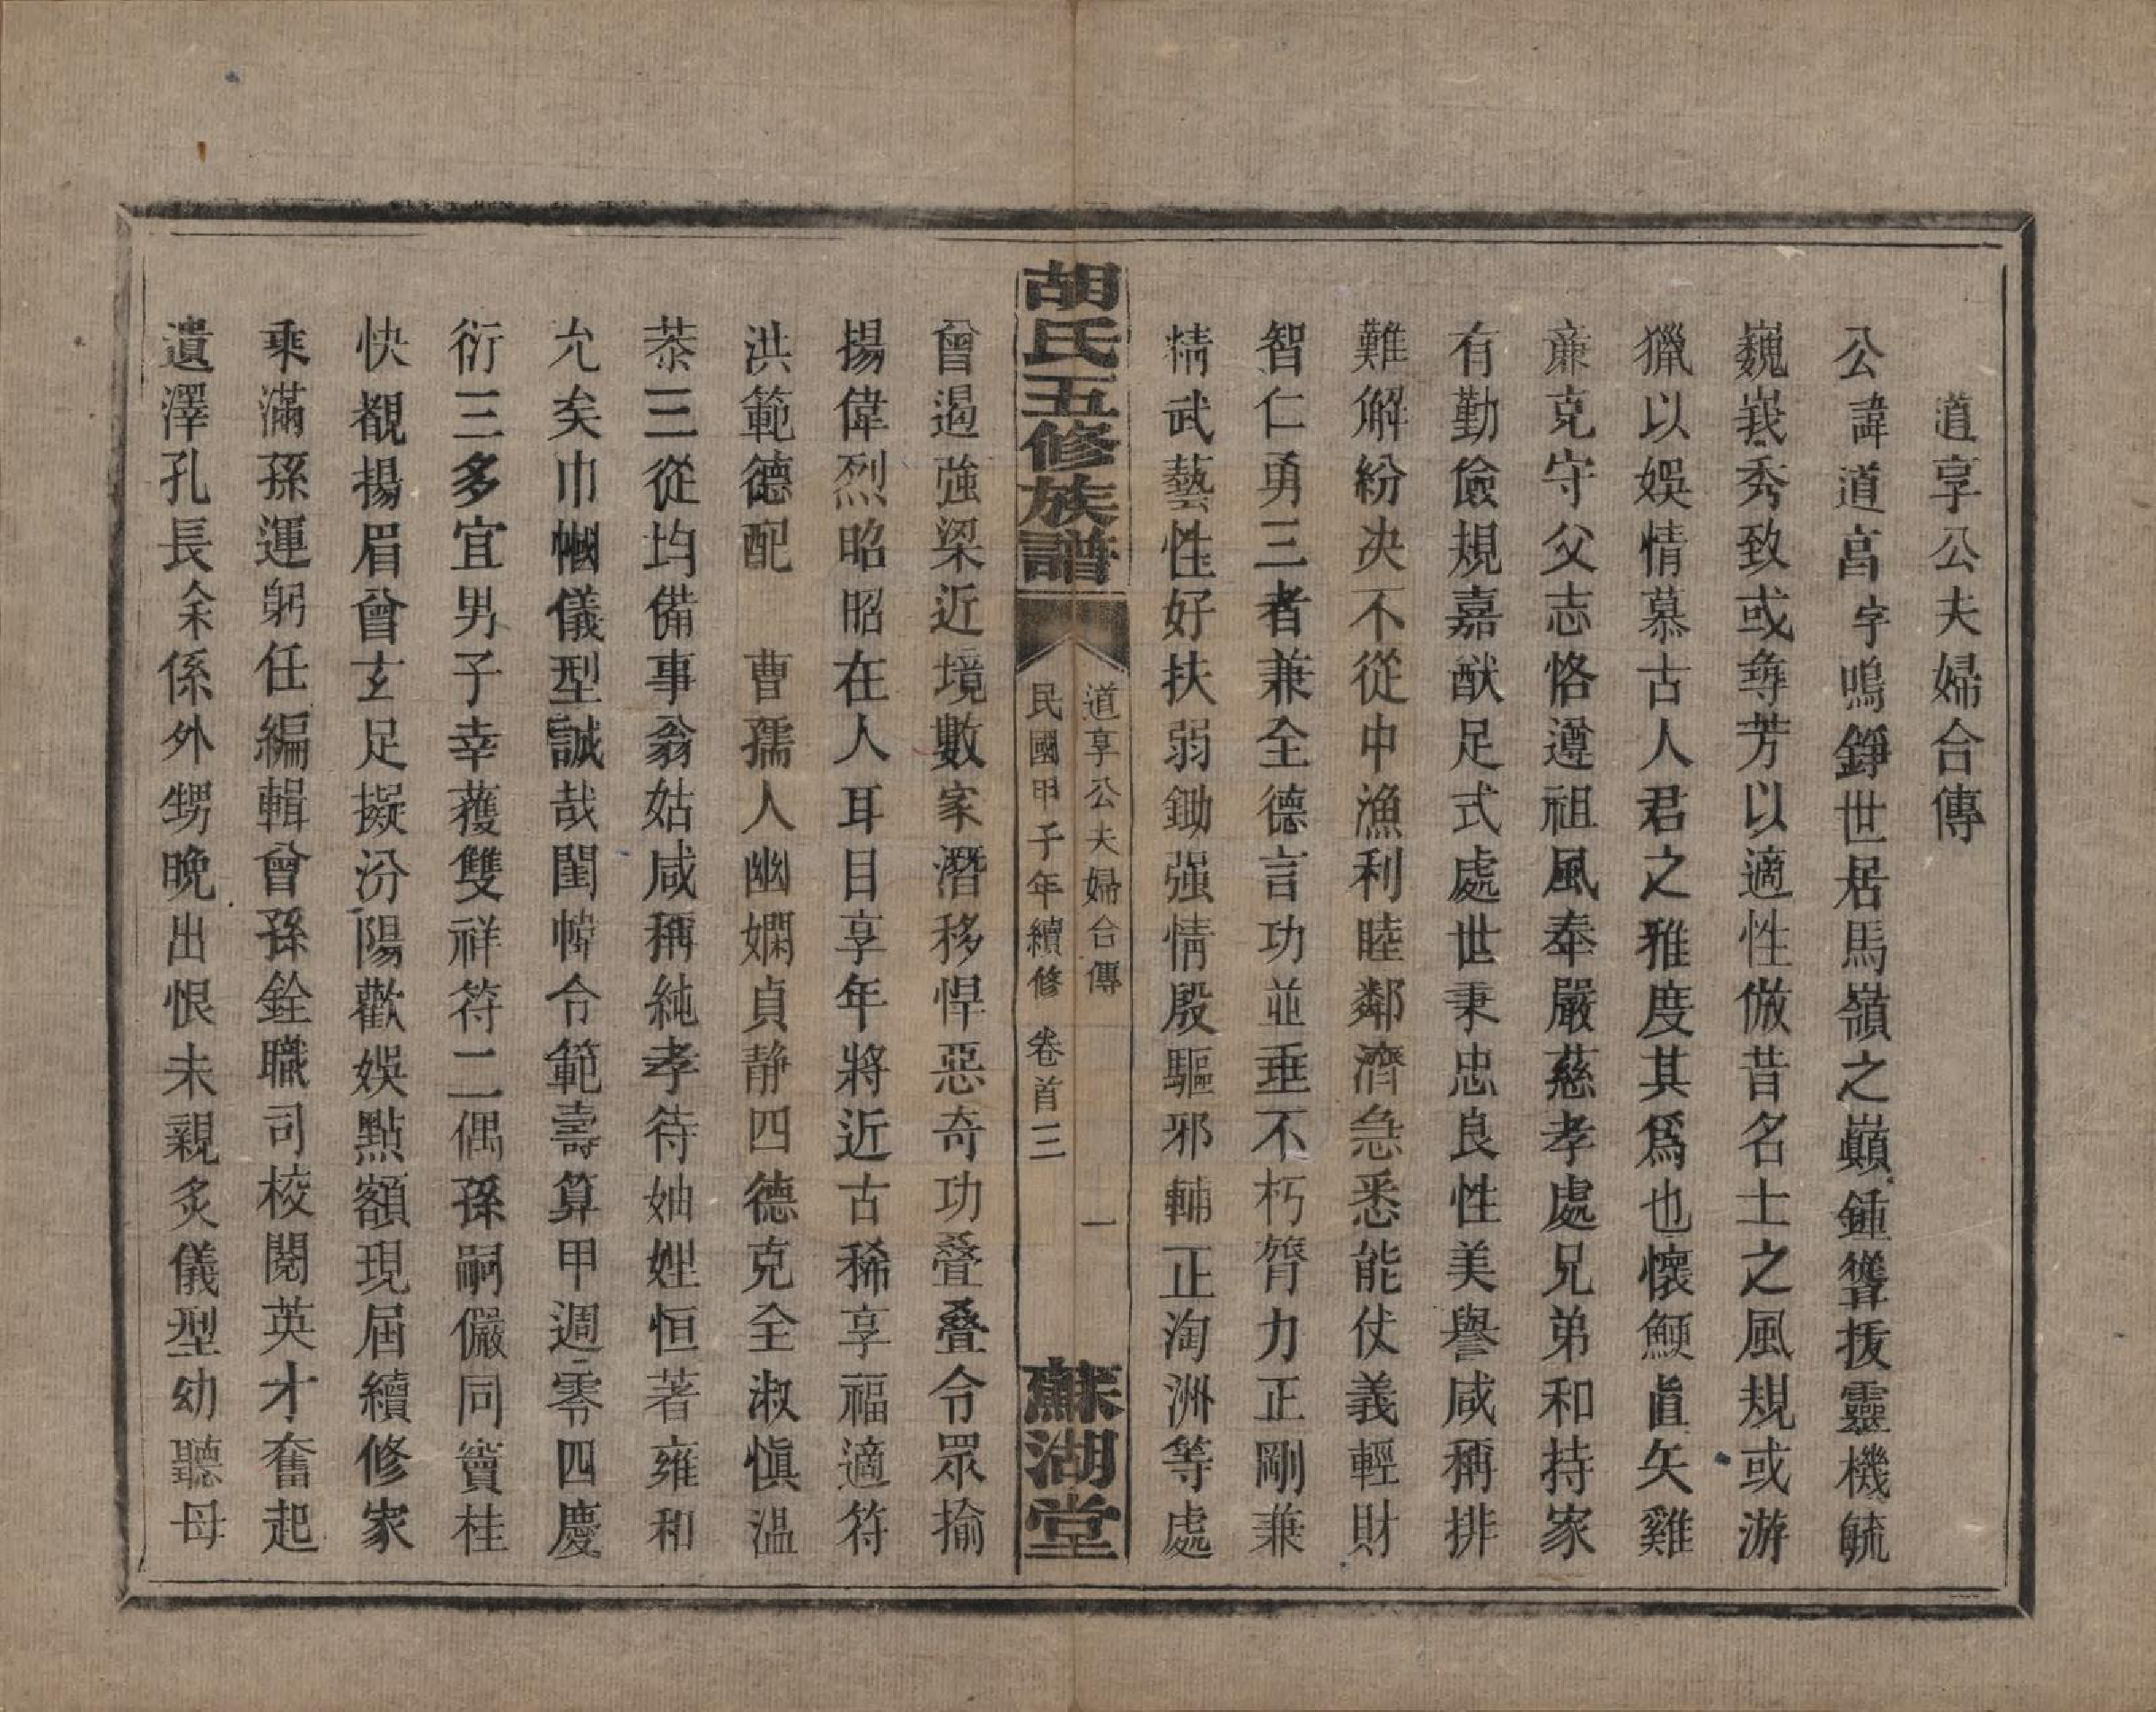 道享公夫婦合傳
公諱道亯字鳴錚世居馬嶺之巔鍾聳拔靈機毓
巍峩秀致或尋芳以適性倣昔名士之風規或游
獵以娛情慕古人君之雅度其爲也懷鯁直矢雞
亷克守父志恪遵祖風奉嚴慈孝處兄弟和持家
有勤儉規嘉猷足式處世秉忠良性美譽咸稱排
難解紛决不從中漁利睦鄰濟急悉能仗義輕財
智仁勇三者兼全德言功並垂不朽膂力正剛兼
精武藝性好扶弱鋤强情殷驅邪輔正淘洲等處
胡氏五修族譜
道享公夫婦合傳 一
民國甲子年續修 卷首三
蘇湖堂
曾遏強梁近境數家潛移悍惡奇功叠叠令眾揄
揚偉烈昭昭在人耳目享年將近古稀享福適符
洪範德配 曹孺人幽嫻貞静四德克全淑愼温
恭三從均備事翁姑咸稱純孝待妯娌恒著雍和
允矣巾幗儀型誠哉閨幃令範壽算甲週零四慶
衍三多宜男子幸蒦雙祥符二偶孫嗣儼同竇桂
快覩揚眉曾玄足擬汾陽歡娛點額現屆續修家
乘滿孫運躬任編輯曾孫銓職司校閱英才奮起
遺澤孔長余係外甥晚出恨未親炙儀型幼聽母